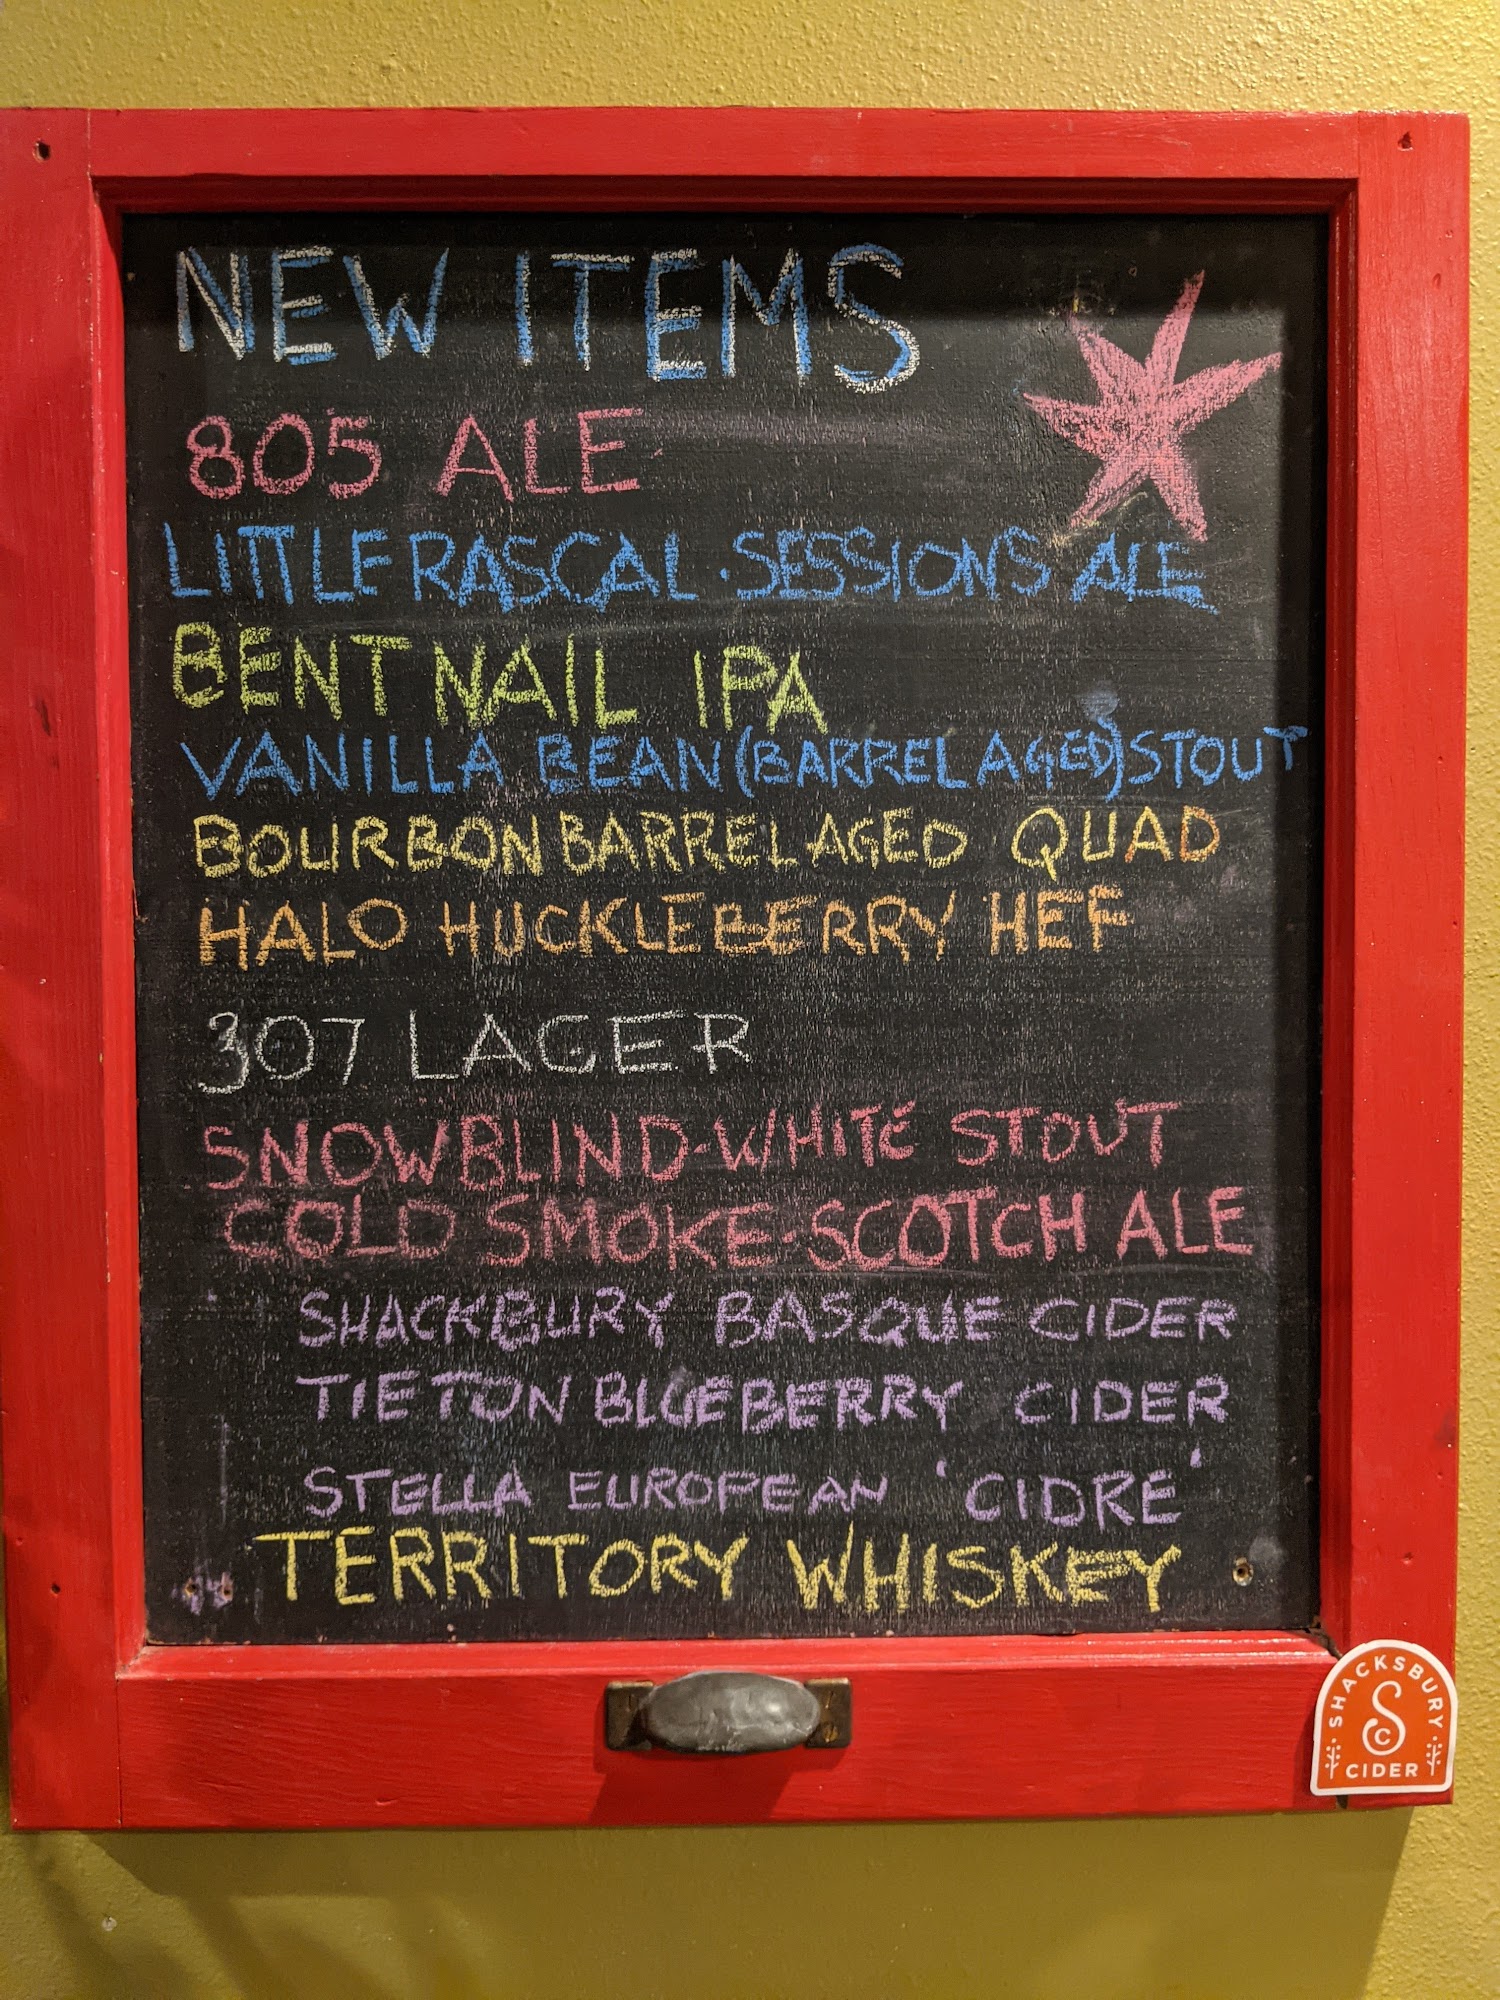 NEW ITEMS
805 ALE
LITTLE RASCAL · SESSIONS ALE
BENT NAIL IPA
VANILLA BEAN (BARREL AGED) STOUT
BOURBON BARREL AGED QUAD
HALO HUCKLEBERRY HEF
307 LAGER
SNOWBLIND-WHITE STOUT
COLD SMOKE-SCOTCH ALE
SHACKBURY BASQUE CIDER
TIETON BLUEBERRY CIDER
STELLA EUROPEAN 'CIDRE'
TERRITORY WHISKEY
SHACKSBURY
SC
CIDER